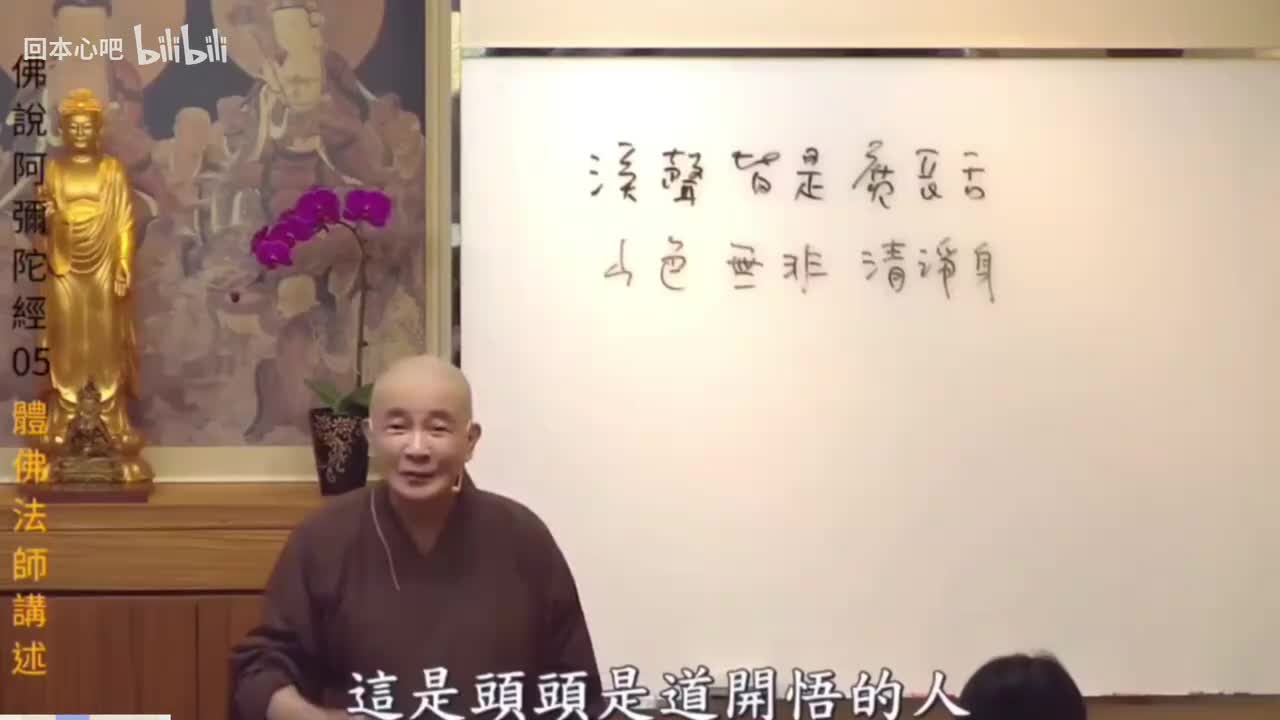 回本心吧 bilibili
佛說阿彌陀經05 體佛法師講述
溪聲皆是廣長舌
山色無非清淨身
這是頭頭是道開悟的人